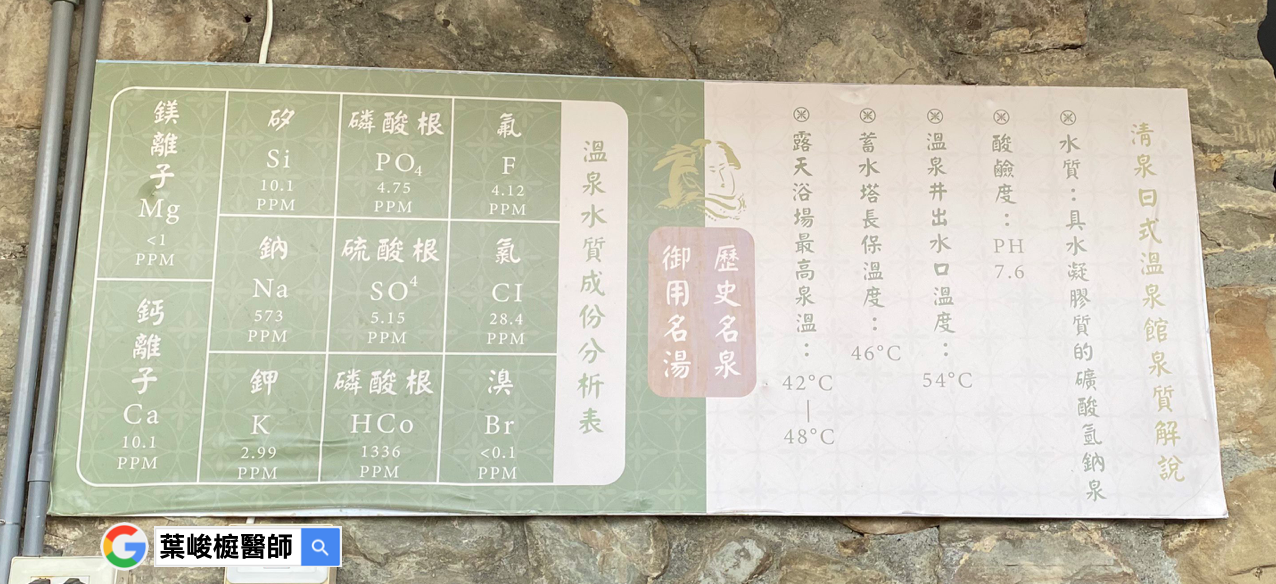 清泉日式溫泉館泉質解說
水質：具水凝膠質的礦酸氫鈉泉
酸鹼度：PH 7.6
溫泉井出水口溫度：54°C
蓄水塔長保溫度：46°C
露天浴場最高泉溫：42°C｜48°C
歷史名泉
御用名湯
溫泉水質成份分析表
氟
F
4.12
PPM
氯
CI
28.4
PPM
溴
Br
<0.1
PPM
磷酸根
PO4
4.75
PPM
硫酸根
SO4
5.15
PPM
磷酸根
HCo
1336
PPM
矽
Si
10.1
PPM
鈉
Na
573
PPM
鉀
K
2.99
PPM
鎂離子
Mg
<1
PPM
鈣離子
Ca
10.1
PPM
葉峻榳醫師